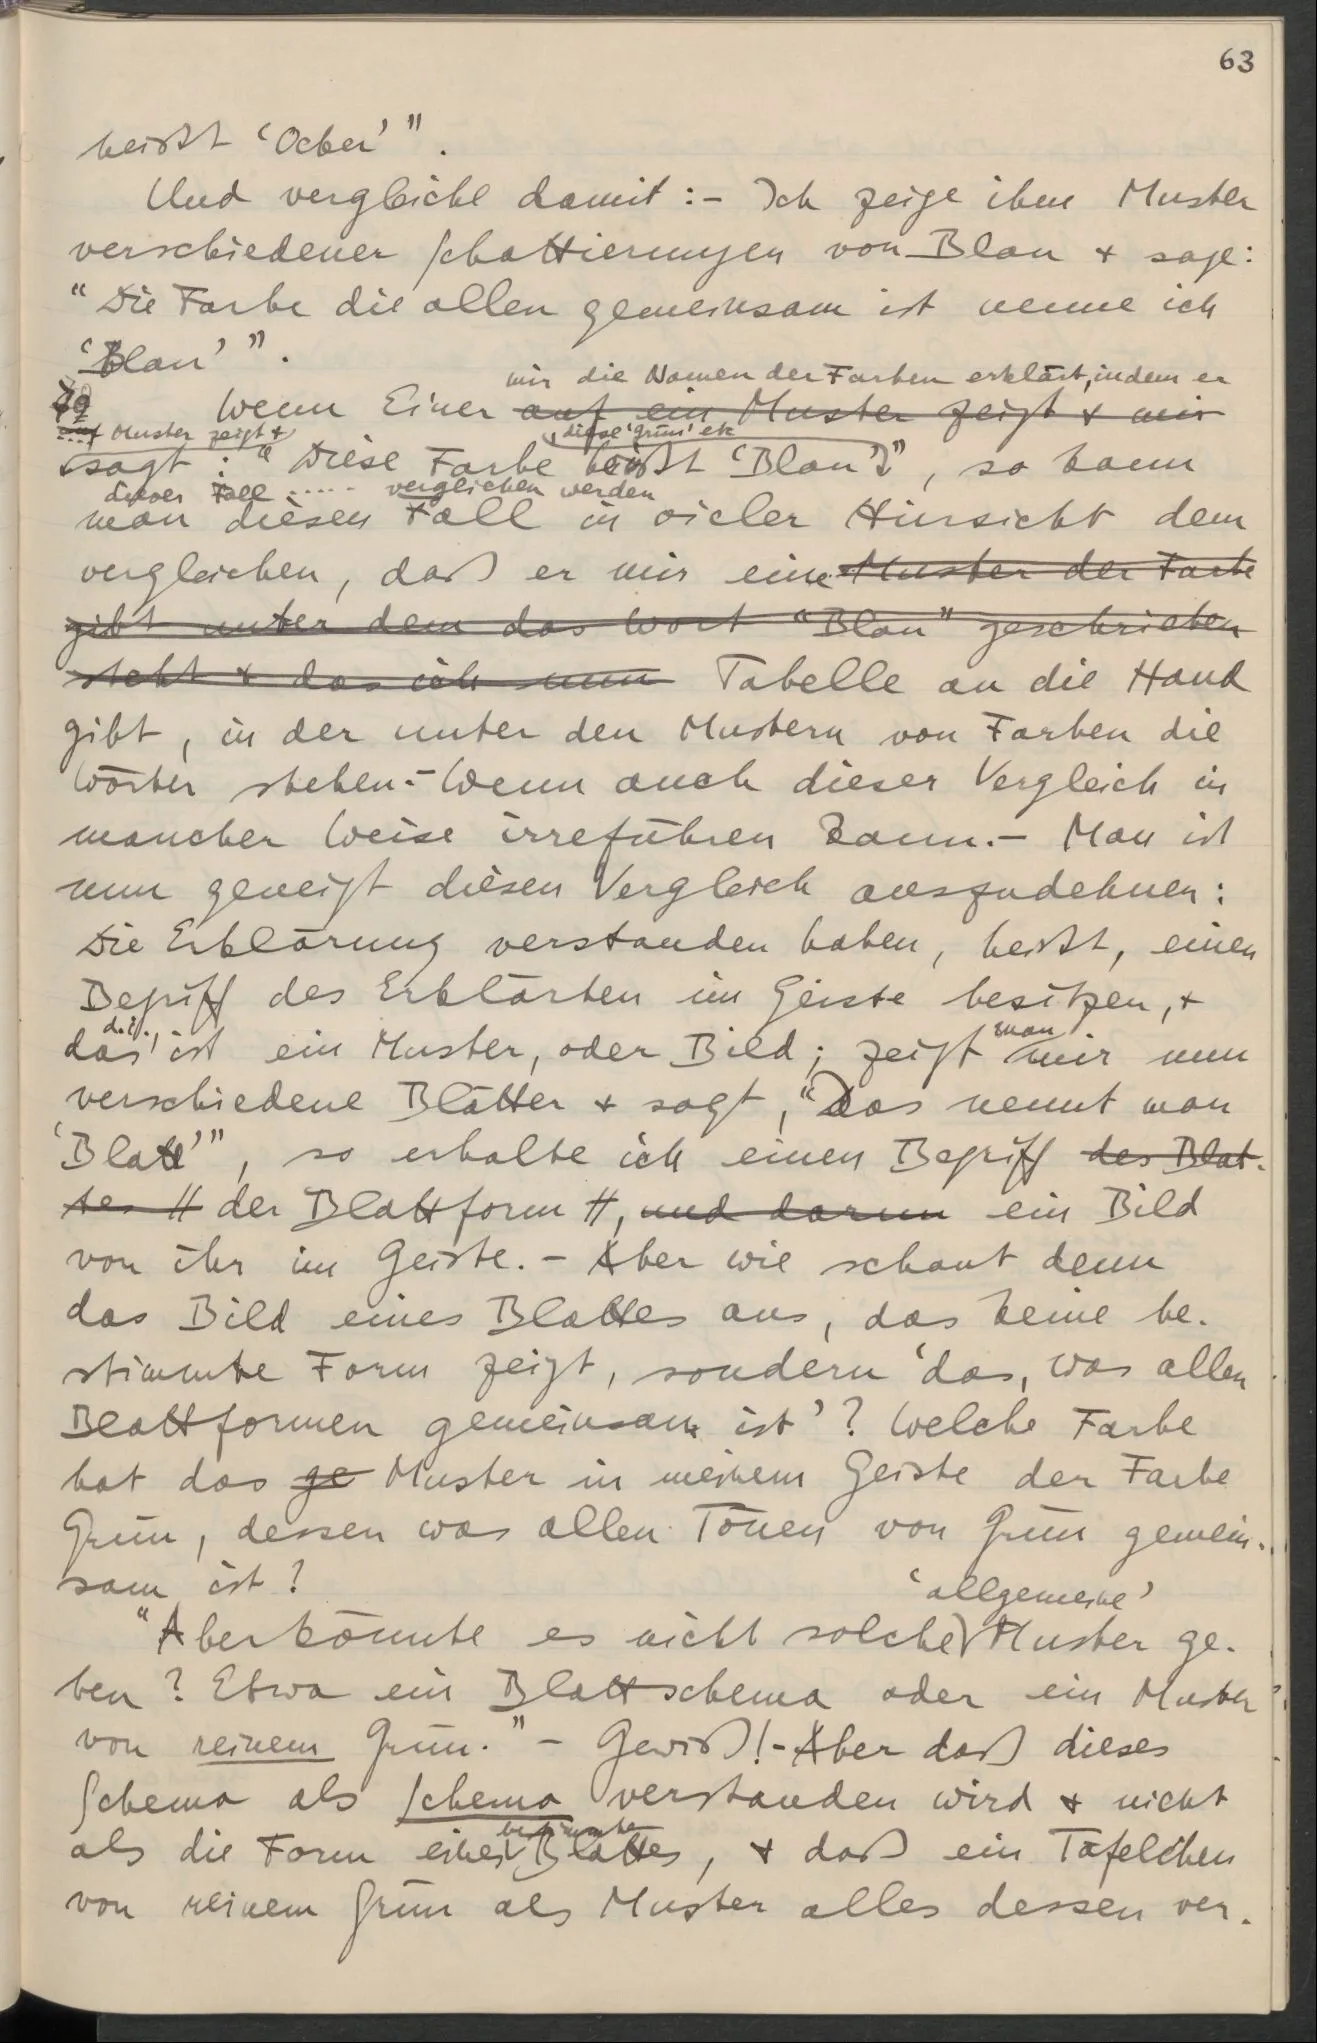 63
heißt ‘Ocker’”.
Und vergleiche damit:– Ich zeige ihm Muster
verschiedener Schattierungen von Blau + sage:
“Die Farbe die allen gemeinsam ist nenne ich
‘Blau’”.
mir die Namen der Farben erklärt, indem er
Wenn Einer auf ein Muster zeigt + mir
auf Muster zeigt +
, diese ‘Grün’ etc
sagt: “Diese Farbe heißt ‘Blau’”, so kann
dieser Fall ..... verglichen werden
man diesen Fall in vieler Hinsicht dem
vergleichen, daß er mir eine Muster der Farbe
gibt unter dem das Wort “Blau” geschrieben
steht + das ich nun Tabelle an die Hand
gibt, in der unter den Mustern von Farben die
Wörter stehen.– Wenn auch dieser Vergleich in
mancher Weise irreführen kann.– Man ist
nun geneigt diesen Vergleich auszudehnen:
Die Erklärung verstanden haben, heißt, einen
Begriff des Erklärten im Geiste besitzen, +
d.i.
man
das ist ein Muster, oder Bild; zeigt mir nun
verschiedene Blätter + sagt, “Das nennt man
‘Blatt’”, so erhalte ich einen Begriff des Blat-
tes // der Blattform //, und darum ein Bild
von ihr im Geiste.– Aber wie schaut denn
das Bild eines Blattes aus, das keine be-
stimmte Form zeigt, sondern ‘das, was allen
Blattformen gemeinsam ist’? Welche Farbe
hat das ge Muster in meinem Geiste der Farbe
Grün, dessen was allen Tönen von Grün gemein-
sam ist?
‘allgemeine’
“Aber könnte es nicht solche Muster ge-
ben? Etwa ein Blattschema oder ein Muster
von reinem Grün.” – Gewiß!– Aber daß dieses
Schema als Schema verstanden wird + nicht
bestimmten
als die Form eines Blattes, + daß ein Täfelchen
von reinem Grün als Muster alles dessen ver-